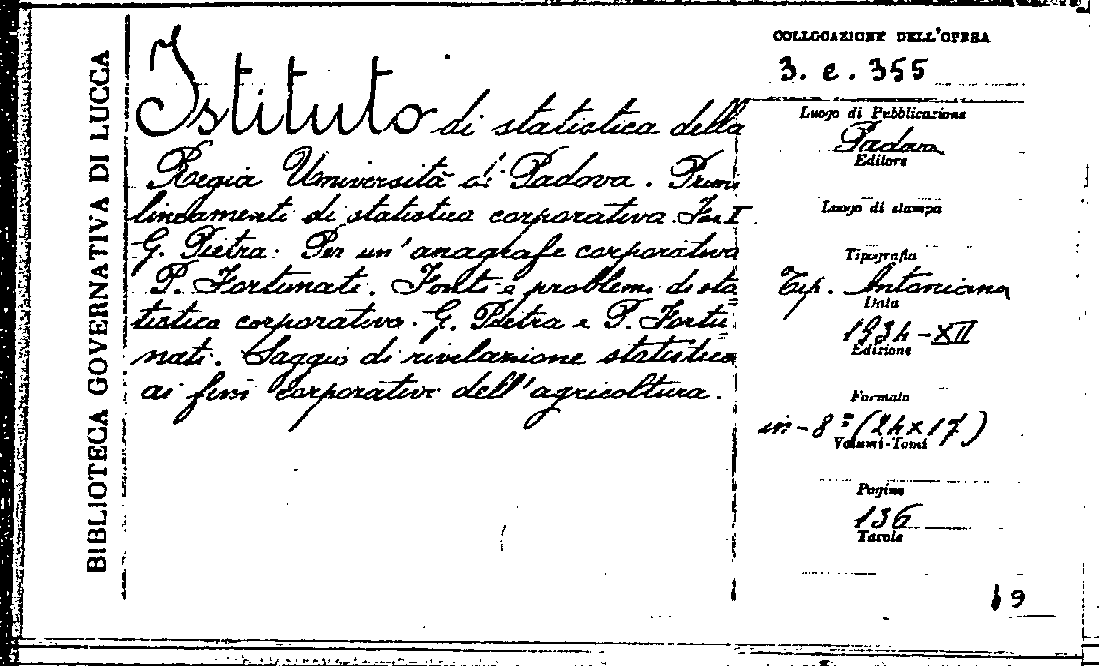 BIBLIOTECA GOVERNATIVA DI LUCCA
Istituto di statistica della
Regia Università di Padova. Primi
lineamenti di statistica corporativa. Fas. I.
G. Pietra: Per un'anagrafe corporativa
P. Fortunati. Fonti e problemi di sta
tistica corporativa. G. Pietra e P. Fortu
nati. Saggio di rivelazione statistica
ai fini corporativi dell'agricoltura.
COLLOCAZIONE DELL'OPERA
3. e. 355
Luogo di Pubblicazione
Padova
Editore
Luogo di stampa
Tipografia
Tip. Antoniana
Data
1934-XII
Edizione
Formato
in-8° (24x17)
Volumi-Tomi
Pagine
136
Tavole
9